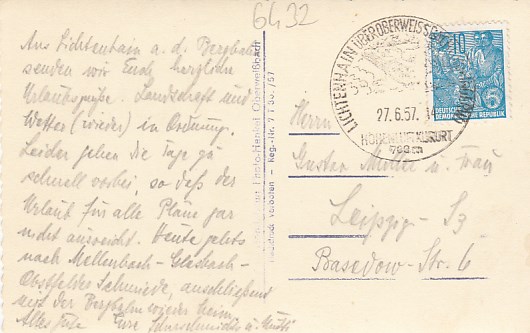 6432
Aus Lichtenhain a. d. Bergbahn
senden wir Euch herzliche
Urlaubsgrüße. Landschaft und
Wetter (wieder) in Ordnung.
Leider gehen die Tage zu
schnell vorbei, so daß der
Urlaub für alle Pläne gar
nicht ausreicht. Heute gehts
nach Mellenbach-Glasbach-
Obstfelder Schmiede, anschließend
mit der Bergbahn wieder heim.
Alles Gute Eure u. Mutti
Oberweißbach
Reg.-Nr. 9 T 56 /57
verboten
LICHTENHAIN ÜBER OBERWEISSBACH
27.6.57.
HÖHENLUFTKURORT
10
5
DEUTSCHE
DEMOKRATISCHE REPUBLIK
Herrn
Gustav Möller u. Frau
Leipzig-S3
Basedow-Str. 6